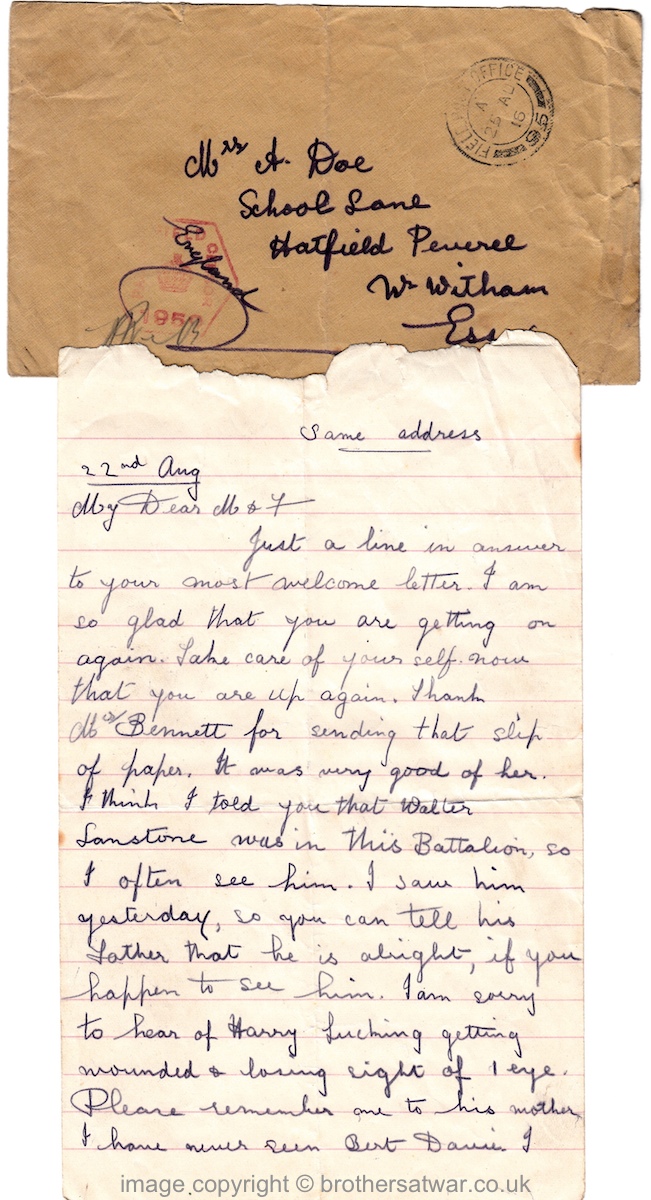 FIELD POST OFFICE
A
25 AU
16
95
Mrs A. Doe
School Lane
Hatfield Peverel
Nr Witham
Essex
England
1950
Same address
22nd Aug
My Dear M & F
Just a line in answer
to your most welcome letter. I am
so glad that you are getting on
again. Take care of yourself now
that you are up again. Thank
Mrs Bennett for sending that slip
of paper. It was very good of her.
I think I told you that Walter
Lanstone was in this Battalion, so
I often see him. I saw him
yesterday, so you can tell his
Father that he is alright, if you
happen to see him. I am sorry
to hear of Harry Lucking getting
wounded & losing sight of 1 eye.
Please remember me to his mother
I have never seen Bert Davies I
image copyright © brothersatwar.co.uk